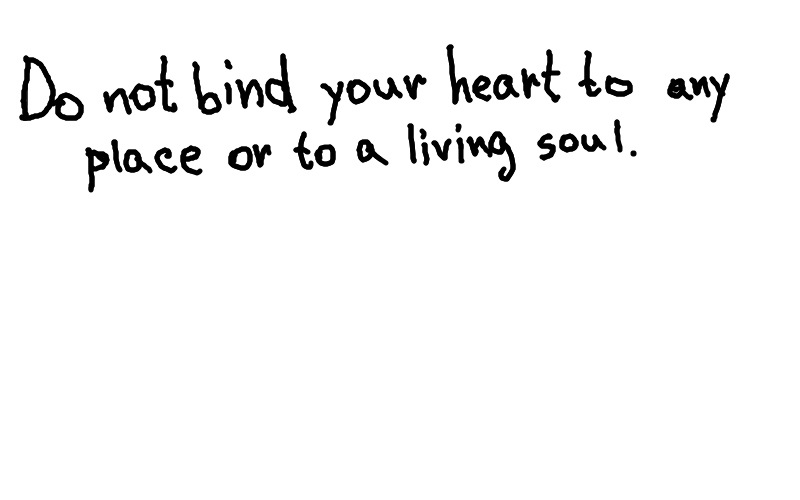 Do not bind your heart to any
place or to a living soul.